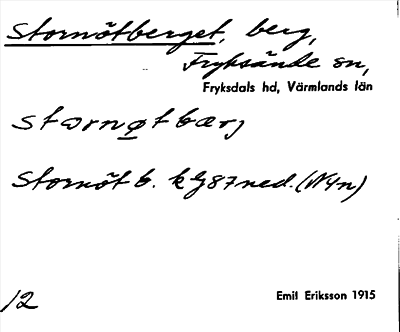 Stornötberget, berg,
Fryksände sn,
Fryksdals hd, Värmlands län
stornøtbærj
Stornöt b. kG87ned. (N4n)
12
Emil Eriksson 1915